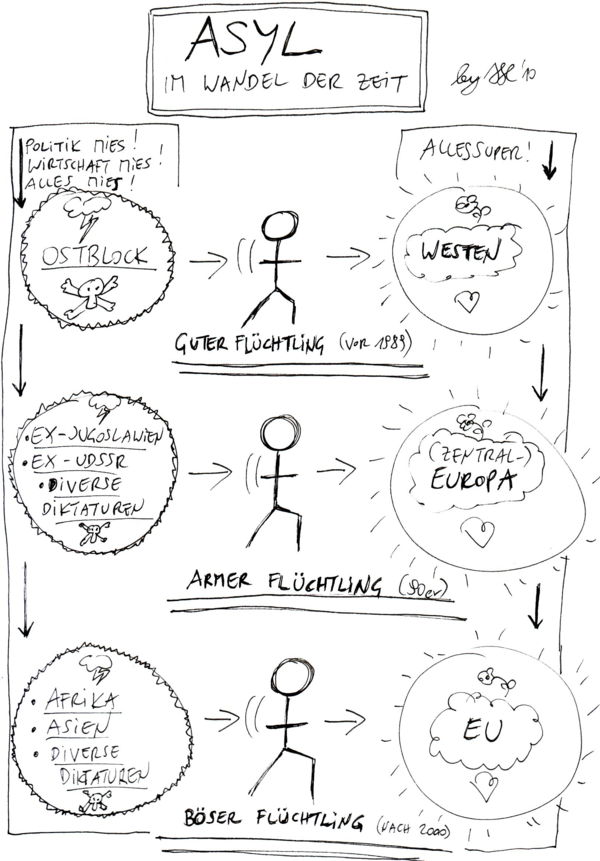 ASYL
IM WANDEL DER ZEIT
by
'10
POLITIK MIES!
WIRTSCHAFT MIES!
ALLES MIES!
ALLES SUPER!
OSTBLOCK
WESTEN
GUTER FLÜCHTLING (VOR 1989)
• EX-JUGOSLAWIEN
• EX-UDSSR
• DIVERSE
DIKTATUREN
(ZENTRAL-)
EUROPA
ARMER FLÜCHTLING (90er)
• AFRIKA
• ASIEN
• DIVERSE
DIKTATUREN
EU
BÖSER FLÜCHTLING (NACH 2000)